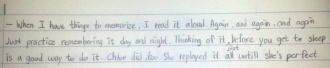 - When I have things to memorize, I read it aloud. Again and again, and again
Just practice remembering it day and night. Thinking of it, before you get to sleep
is a good way to do it. Chloe did too. She replayed it all just untill she's perfect